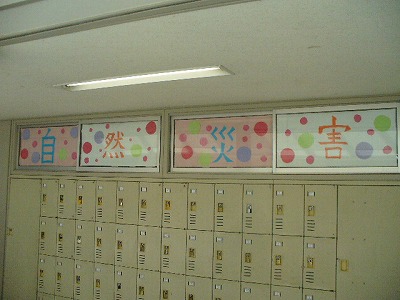 自然災害